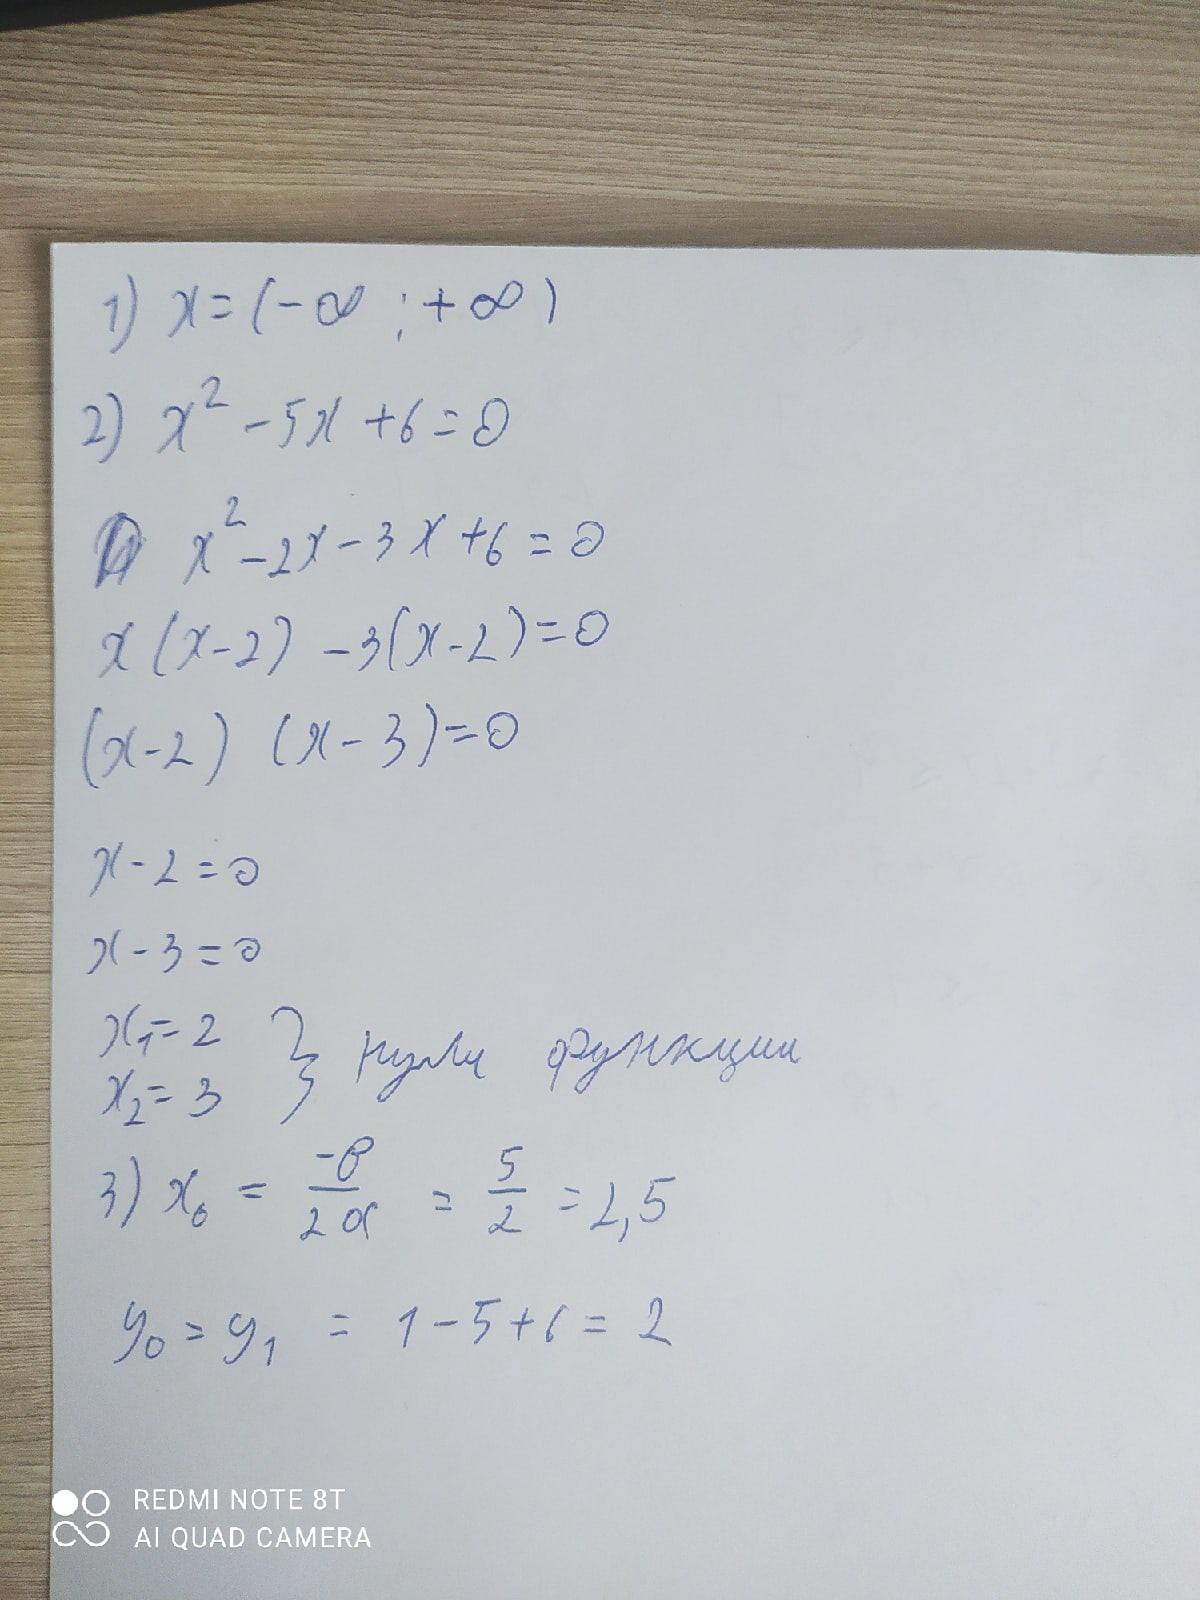 1) x = (-∞ ; +∞)
2) x² - 5x + 6 = 0
x² - 2x - 3x + 6 = 0
x (x - 2) - 3(x - 2) = 0
(x - 2) (x - 3) = 0
x - 2 = 0
x - 3 = 0
x₁ = 2
x₂ = 3 } нули функции
3) x₀ = -в/2a = 5/2 = 2,5
y₀ = y₁ = 1 - 5 + 6 = 2
REDMI NOTE 8T
AI QUAD CAMERA